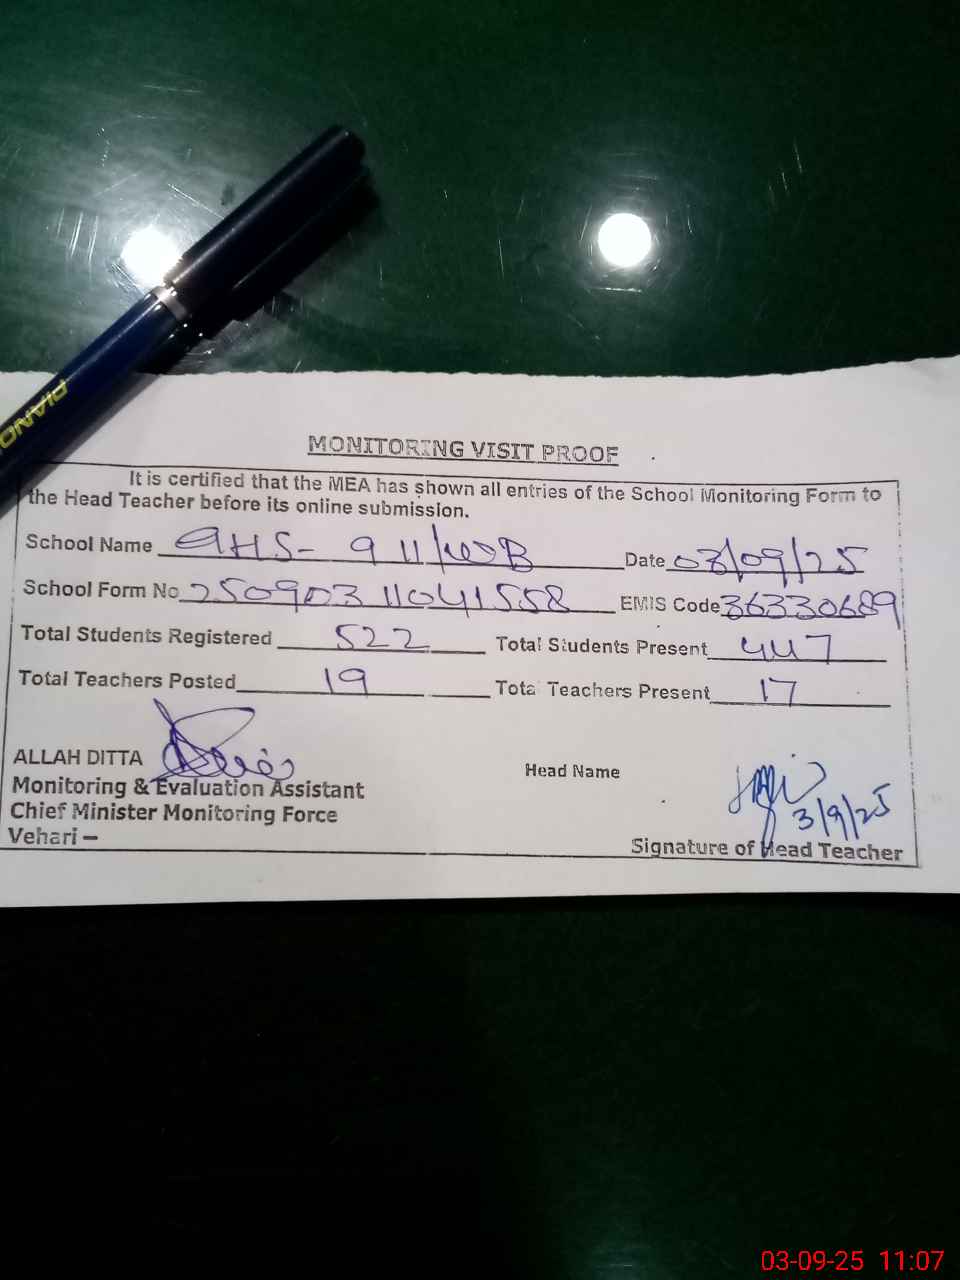 PIANO
MONITORING VISIT PROOF
It is certified that the MEA has shown all entries of the School Monitoring Form to
the Head Teacher before its online submission.
School Name GHS- 9 11/WB Date 03/09/25
School Form No 25090311041558 EMIS Code 36330689
Total Students Registered 522 Total Students Present 447
Total Teachers Posted 19 Total Teachers Present 17
ALLAH DITTA
Monitoring & Evaluation Assistant
Chief Minister Monitoring Force
Vehari –
Head Name
3/9/25
Signature of Head Teacher
03-09-25 11:07